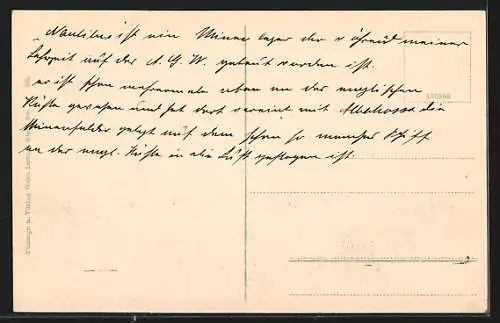 „Nautilus ist ein Minenleger der während meiner
Lehrzeit auf der A. G. W. gebaut worden ist.
er ist schon mehreremale oben an der englischen
Küste gewesen und hat dort vereint mit Albatross die
Minenfelder gelegt auf dem schon so mancher Schiff
an der engl. Küste in die Luft geflogen ist.